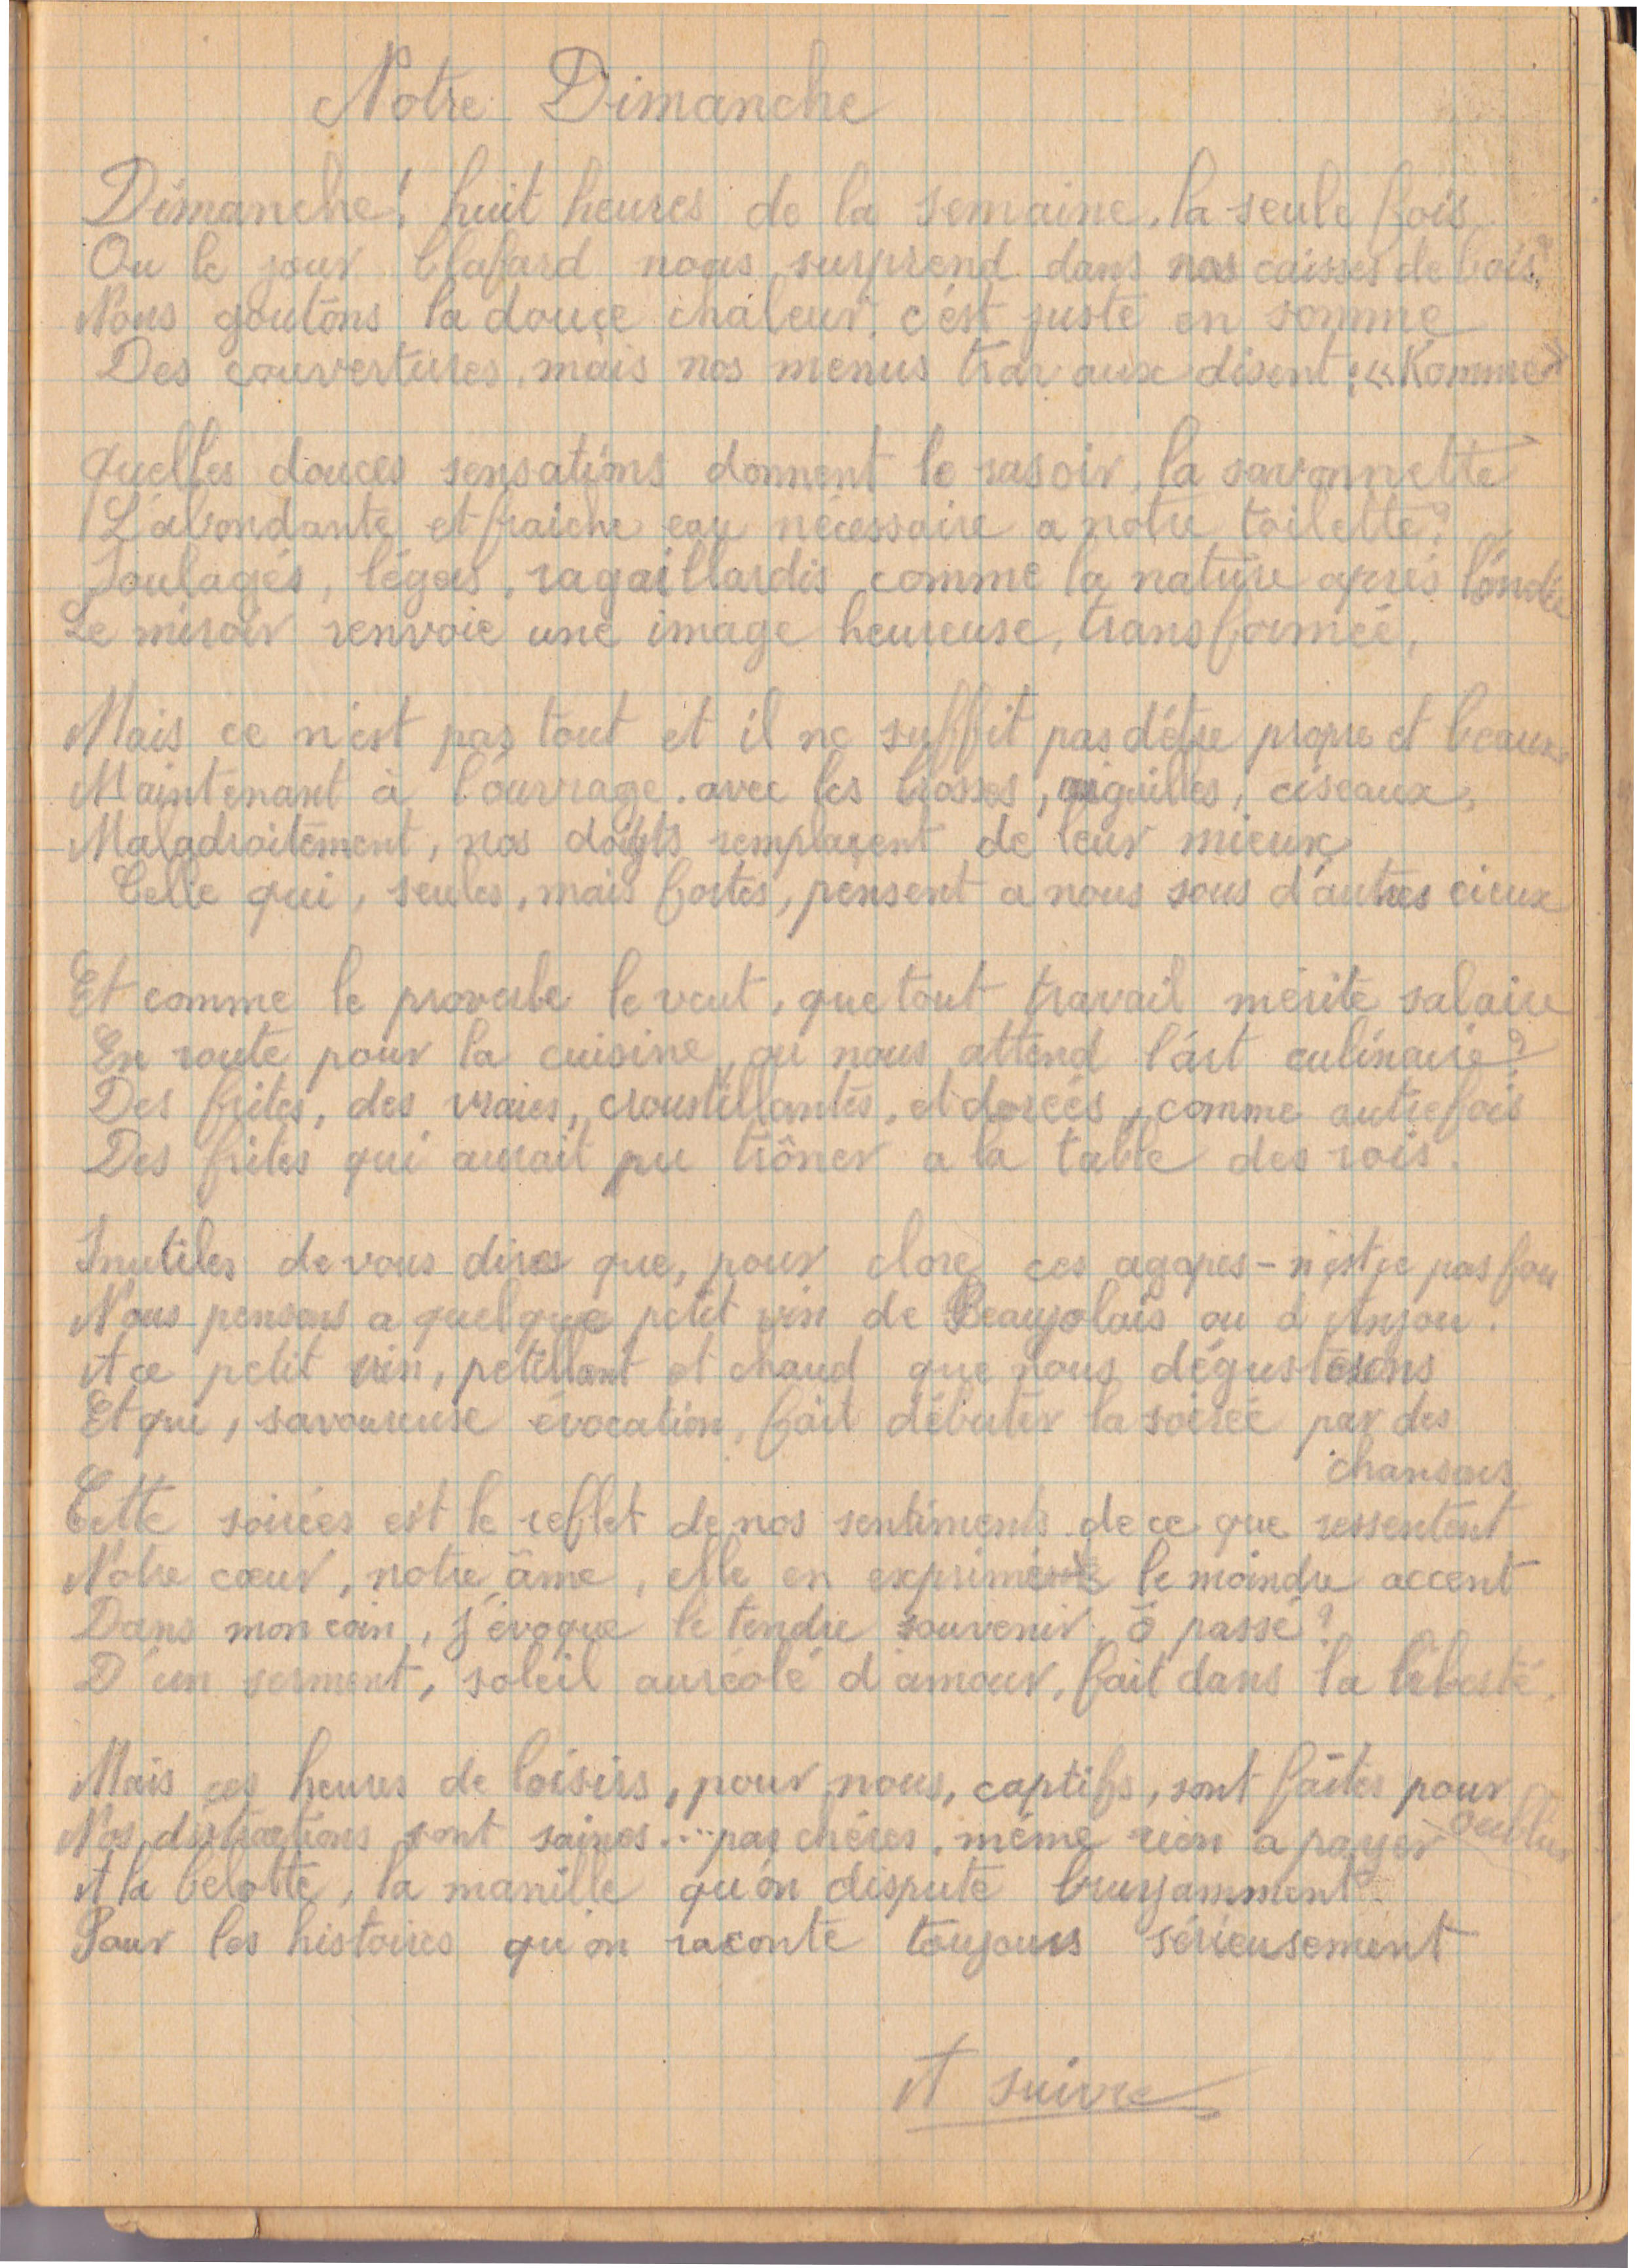 Notre Dimanche
Dimanche! huit heures de la semaine, la seule fois
Ou le jour blafard nous surprend dans nos caisses de bois,
Nous goutons la douce chaleur, c'est juste en somme
Des couvertures, mais nos menus travaux disent : «Komme»
Quelles douces sensations donnent le rasoir, la savonnette
L'abondante et fraiche eau nécessaire a notre toilette?
Soulagés, légers, ragaillardis comme la nature après l'ondée
Le miroir renvoie une image heureuse, transformée,
Mais ce n'est pas tout et il ne suffit pas d'être propre et beaux
Maintenant à l'ouvrage. avec les brosses, aiguilles, ciseaux,
Maladroitement, nos doigts remplaçent de leur mieux
Celle qui, seules, mais fortes, pensent a nous sous d'autres cieux
Et comme le proverbe le veut, que tout travail mérite salaire
En route pour la cuisine, ou nous attend l'art culinaire?
Des frites, des vraies, croustillantes, et dorées, comme autrefois
Des frites qui aurait pu trôner a la table des rois.
Inutiles de vous dires que, pour clore ces agapes - n'est ce pas fou
Nous pensons a quelque petit vin de Beaujolais ou d'Anjou.
A ce petit vin, petillant et chaud que nous dégusterons
Et qui, savoureuse évocation, fait débuter la soirée par des
chansons
Cette soirées est le reflet de nos sentiments de ce que ressentent
Notre cœur, notre âme, elle en exprime le moindre accent
Dans mon coin, j'évoque le tendre souvenir, ô passé?
D'un serment, soleil auréolé d'amour, fait dans la liberté.
Mais ces heures de loisirs, pour nous, captifs, sont faites pour
oublier
Nos distractions sont saines... pas chères, même rien a payer
A la belotte, la manille qu'on dispute bruyamment
Pour les histoires qu'on raconte toujours sérieusement
A suivre